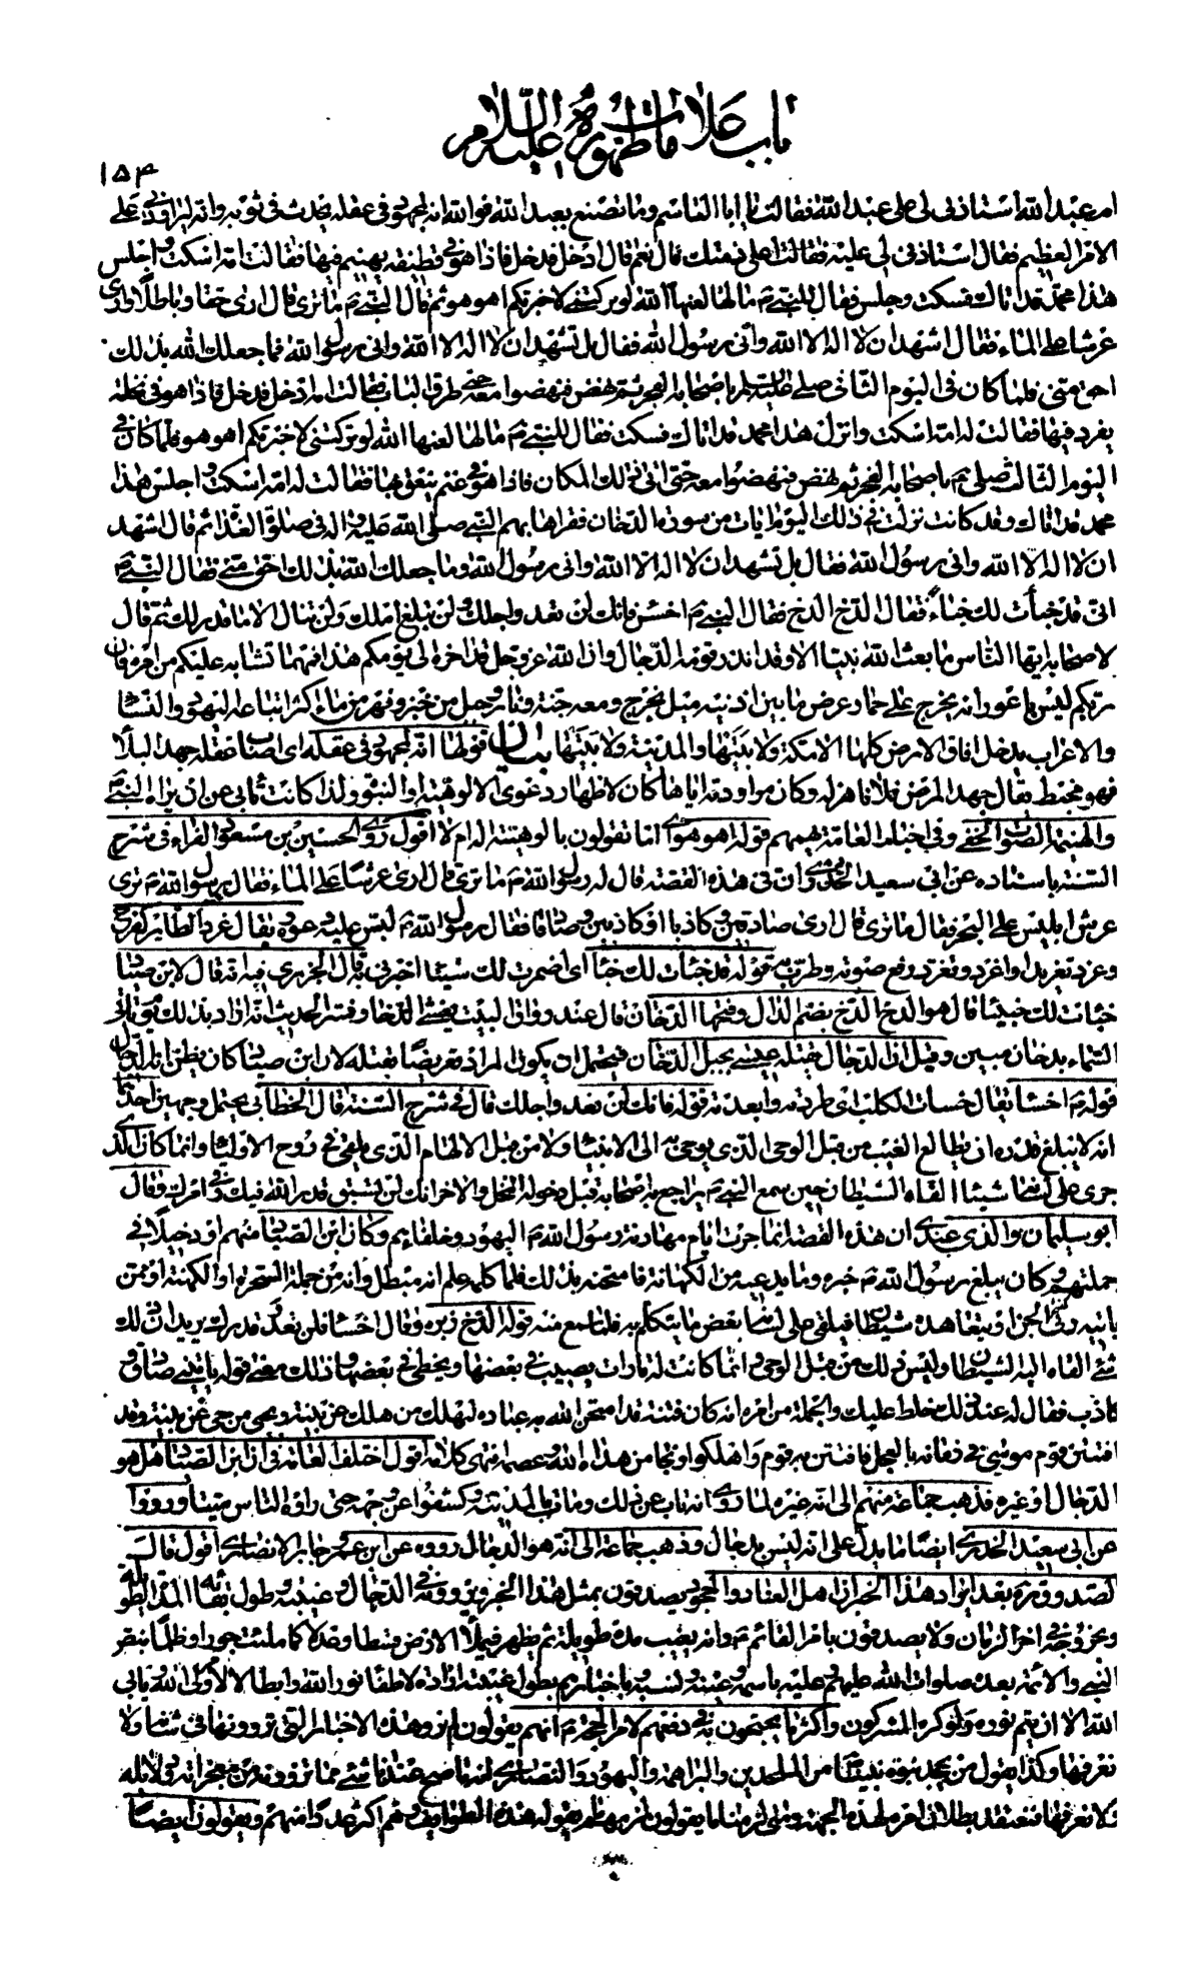 باب علامات ظهوره عليه السلام
١٥٤
ام عبد الله استاذنى لى على عبد الله فقالت يا ابا القاسم وما تصنع بعبد الله فو الله انه لمجهود فى عقله يحدث فى ثوبه وانه ليراودنى على
الامر العظيم فقال استاذنى لى عليه فقالت اعلى ذمتك قال نعم قال ادخل فدخل فاذا هو فى قطيفة يهينم فيها فقالت امه اسكت واجلس
هذا محمد قد اتاك فسكت وجلس فقال للنبى ص ما لها لعنها الله لو تركتنى لاخبرتكم اهو هو ثم قال النبى ص ما ترى قال ارى حقا وباطلا وارى
عرشا على الماء فقال اشهد ان لا اله الا الله وانى رسول الله فقال بل تشهد ان لا اله الا الله وانى رسول الله فما جعلك الله بذلك
احق منى فلما كان فى اليوم الثانى صلى عليه السلم باصحابه الفجر ثم نهض فنهضوا معه حتى طرق الباب فقالت امه ادخل فدخل فاذا هو فى نخلة
يغرد فيها فقالت له امه اسكت وانزل هذا محمد قد اتاك فسكت فقال للنبى ص ما لها لعنها الله لو تركتنى لاخبرتكم اهو هو فلما كان فى
اليوم الثالث صلى ص باصحابه الفجر ثم نهض فنهضوا معه حتى اتى ذلك المكان فاذا هو فى غنم ينعق بها فقالت له امه اسكت واجلس هذا
محمد قد اتاك وقد كانت نزلت فى ذلك اليوم ايات من سورة الدخان فقراها بهم النبى صلى الله عليه واله فى صلوة الغداة ثم قال اشهد
ان لا اله الا الله وانى رسول الله فقال بل تشهد ان لا اله الا الله وانى رسول الله وما جعلك الله بذلك احق منى فقال النبى ص
انى قد خبأت لك خباء فقال الدخ الدخ فقال النبى ص اخسأ فانك لن تعدو اجلك ولن تبلغ املك ولن تنال الا ما قدر لك ثم قال
لاصحابه ايها الناس ما بعث الله نبيا الا وقد انذر قومه الدجال وان الله عز وجل قد اخره الى يومكم هذا فمهما تشابه عليكم من امره فان
ربكم ليس باعور انه يخرج على حمار عرض ما بين اذنيه ميل يخرج ومعه جنة ونار وجبل من خبز ونهر من ماء اكثر اتباعه اليهود والنساء
والاعراب يدخل افاق الارض كلها الا مكة ولابتيها والمدينة ولابتيها بيان قولها انه لمجهود فى عقله اى اصاب عقله جهد البلاء
فهو مخبط يقال جهد المرض فلانا هزله وكان مراودته اياها كان لاظهار دعوى الالوهية او النبوة ولذا كانت تابى عن ان يراه النبى ص
والهينمة الصوت الخفى وفى اخبار العامة يهمهم قوله اهو هو اى اما تقولون بالوهيته اله ام لا اقول روى الحسين بن مسعود الفراء فى شرح
السنة باسناده عن ابى سعيد الخدرى وان فى هذه القصة قال له رسول الله ص ما ترى قال ارى عرشا على الماء فقال رسول الله ص ترى
عرش ابليس على البحر فقال ما ترى قال ارى صادقين وكاذبا او كاذبين وصادقا فقال رسول الله ص لبس عليه دعوه يقال غرد الطاير كفرح
وغرد تغريدا واغرد وتغرد رفع صوته وطرب به قوله قد خبأت لك خباء اى اضمرت لك شيئا اخبرنى به قال الجزرى فيه انه قال لابن صياد
خبأت لك خبيئا قال هو الدخ الدخ بضم الدال وفتحها الدخان قال عند رواق البيت يغشى الدخا وفسر الحديث انه اراد بذلك يوم تاتى
السماء بدخان مبين وقيل ان الدجال يقتله عيسى بجبل الدخان فيحتمل ان يكون المراد تعريضا بقتله لان ابن صياد كان يظن انه الدجال
قوله ص اخسأ يقال خسأت الكلب اى طردته وابعدته قوله فانك لن تعدو اجلك قال فى شرح السنة قال الخطابى يحتمل وجهين احدهما
انه لا يبلغ قدره ان يطالع الغيب من قبل الوحى الذى يوحى به الى الانبياء ولا من قبل الالهام الذى يلقى فى روح الاولياء وانما كان الذى
جرى على لسانه شيئا القاه الشيطان حين سمع النبى ص يراجع به اصحابه قبل دخوله النخل والاخر انك لن تسبق قدر الله فيك وفى امرك وقال
ابو سليمان والذى عندى ان هذه القصة انما جرت ايام مهادنة رسول الله ص اليهود وحلفاءهم وكان ابن الصياد منهم او دخيلا فى
جملتهم وكان يبلغ رسول الله ص خبره وما يدعيه من الكهانة فامتحنه بذلك فلما كلمه علم انه مبطل وانه من جملة السحرة او الكهنة او ممن
ياتيه رئى الجن او يتعاهده شيطان فيلقى على لسانه بعض ما يتكلم به فلما سمع منه قوله الدخ زبره وقال اخسأ فلن تعدو قدرك يريد ان ذلك
شئ القاه اليه الشيطان وليس ذلك من قبل الوحى وانما كانت له تارات يصيب فى بعضها ويخطئ فى بعضها وذلك معنى قوله ياتينى صادق و
كاذب فقال له عند ذلك خلط عليك والجملة من امره انه كان فتنة قد امتحن الله به عباده ليهلك من هلك عن بينة ويحيى من حى عن بينة وقد
افتتن قوم موسى فى زمانه بالعجل فافتتن به قوم واهلكوا ونجا من هداه الله وعصمه انتهى كلامه اقول اختلف العامة فى ان ابن الصياد هل هو
الدجال او غيره فذهب جماعة منهم الى انه غيره لما روى انه تاب عن ذلك ومات بالمدينة وكشفوا عن وجهه حتى راوه الناس ميتا ورووا
عن ابى سعيد الخدرى ايضا ما يدل على انه ليس بدجال وذهب جماعة الى انه هو الدجال رووه عن ابن عمر وجابر الانصارى اقول قال
الصدوق ره بعد ايراد هذا الخبر ان اهل العناد والجحود يصدقون بمثل هذا الخبر ويروونه فى الدجال وغيبته وطول بقائه المدة الطويلة
وبخروجه فى اخر الزمان ولا يصدقون بامر القائم ع وانه يغيب مدة طويلة ثم يظهر فيملأ الارض قسطا وعدلا كما ملئت جورا وظلما بنص
النبى والائمة بعده صلوات الله عليهم عليه باسمه وعينه ونسبه وباخبارهم بطول غيبته ارادة لاطفاء نور الله وابطالا لامر ولى الله ويابى
الله الا ان يتم نوره ولو كره المشركون واكثر ما يحتجون به فى دفعهم لامر الحجة ع انهم يقولون لم نرو هذه الاخبار التى تروونها فى شانه ولا
نعرفها وكذا يقول من يجحد نبوة نبينا ص من الملحدين والبراهمة واليهود والنصارى انه ما صح عندنا شئ مما تروونه من معجزاته ودلائله
ولا نعرفها فنعتقد بطلان امره لهذه الجهة ومتى لزمنا ما يقولون لزمهم ما يقوله هذه الطوايف وهم اكثر عددا منهم ويقولون ايضا